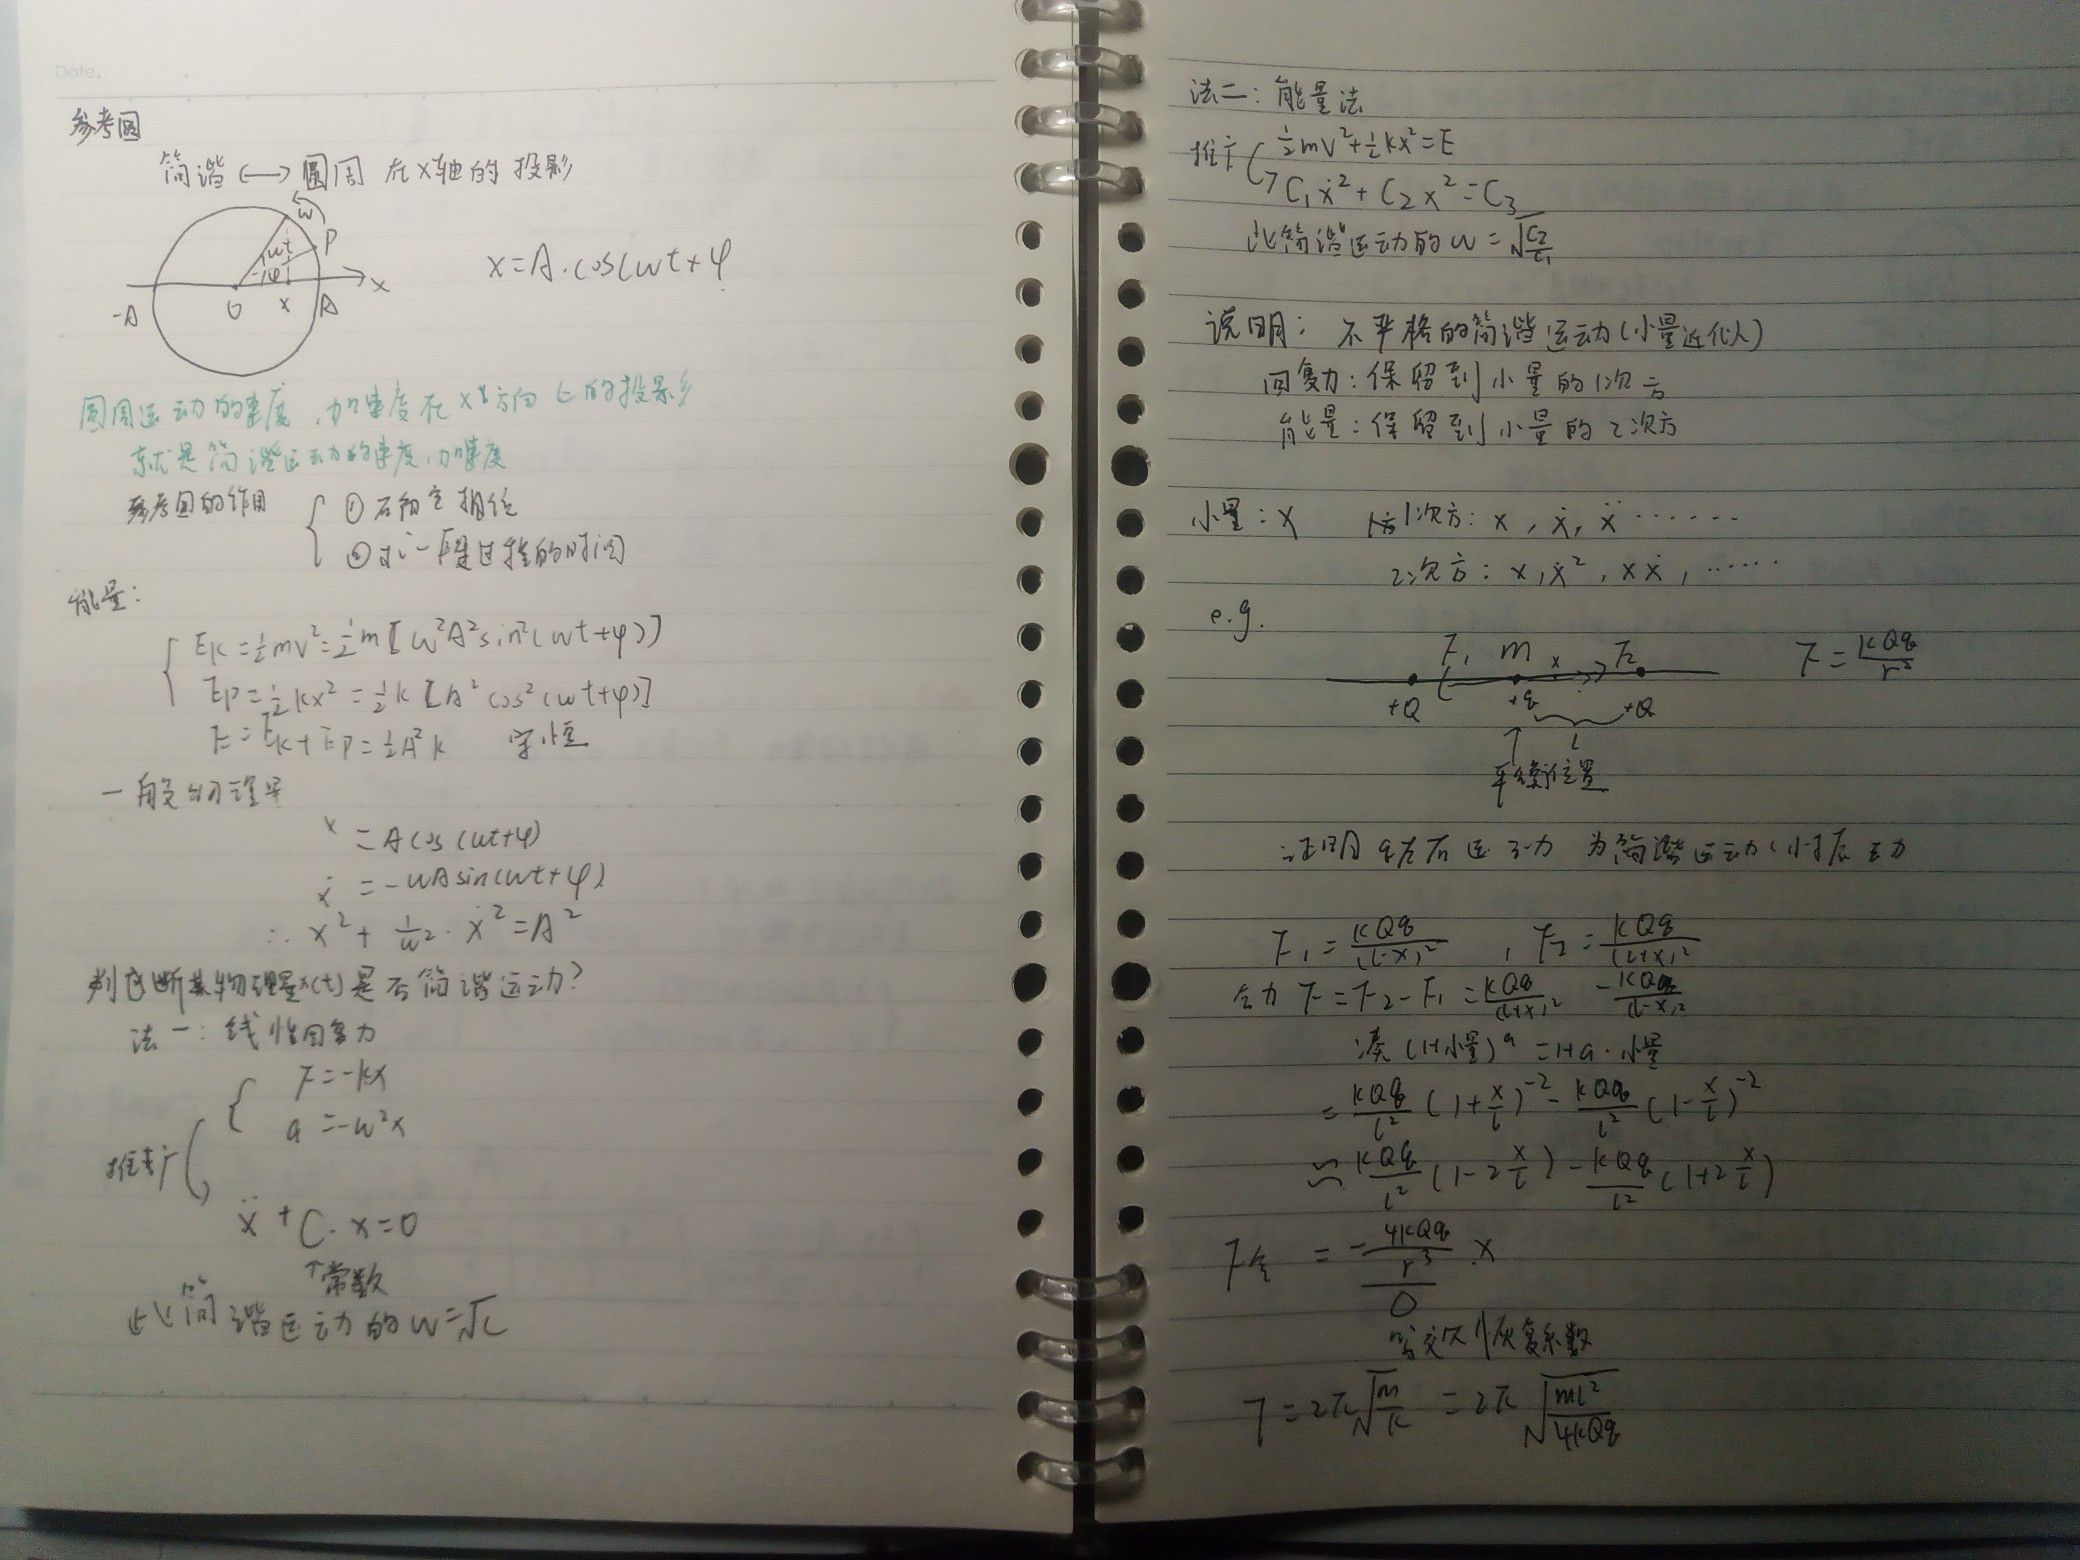 Date.
参考圆
简谐 ⟷ 圆周 在x轴的投影
ω
P
ωt
φ
-A O x A x
x=A·cos(ωt+φ
圆周运动的速度,加速度在x方向上的投影
就是简谐运动的速度,加速度
参考圆的作用
① 确定相位
② 求一段过程的时间
能量:
Ek=½mv²=½m[ω²A²sin²(ωt+φ)]
Ep=½kx²=½k[A²cos²(ωt+φ)]
E=Ek+Ep=½A²k 守恒
一般物理量
x=Acos(ωt+φ)
ẋ=-ωAsin(ωt+φ)
∴ x²+1/ω²·ẋ²=A²
判断某物理量x(t)是否简谐运动?
法一:线性回复力
F=-kx
a=-ω²x
推广
ẍ+C·x=0
↑常数
此简谐运动的ω=√C
法二:能量法
½mv²+½kx²=E
推广
C₁ẋ²+C₂x²=C₃
此简谐运动的ω=√(C₂/C₁)
说明:不严格的简谐运动(小量近似)
回复力:保留到小量的1次方
能量:保留到小量的2次方
小量:x 1次方:x,ẋ,ẍ……
2次方:x,ẋ²,xẋ,……
e.g.
F₁ m x F₂ F=kQq/r²
+Q +q +Q
l
平衡位置
证明q左右运动为简谐运动(小
F₁=kQq/(l-x)² , F₂=kQq/(l+x)²
合力F=F₂-F₁=kQq/(l+x)² -kQq/(l-x)²
凑(1+小量)ᵃ=1+a·小量
=kQq/l²(1+x/l)⁻²-kQq/l²(1-x/l)⁻²
≈kQq/l²(1-2x/l)-kQq/l²(1+2x/l)
F合=-4kQq/r³·x
等效恢复系数
T=2π√(m/k)=2π√(ml²/4kQq)